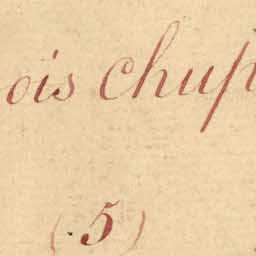 ois chup
(5)